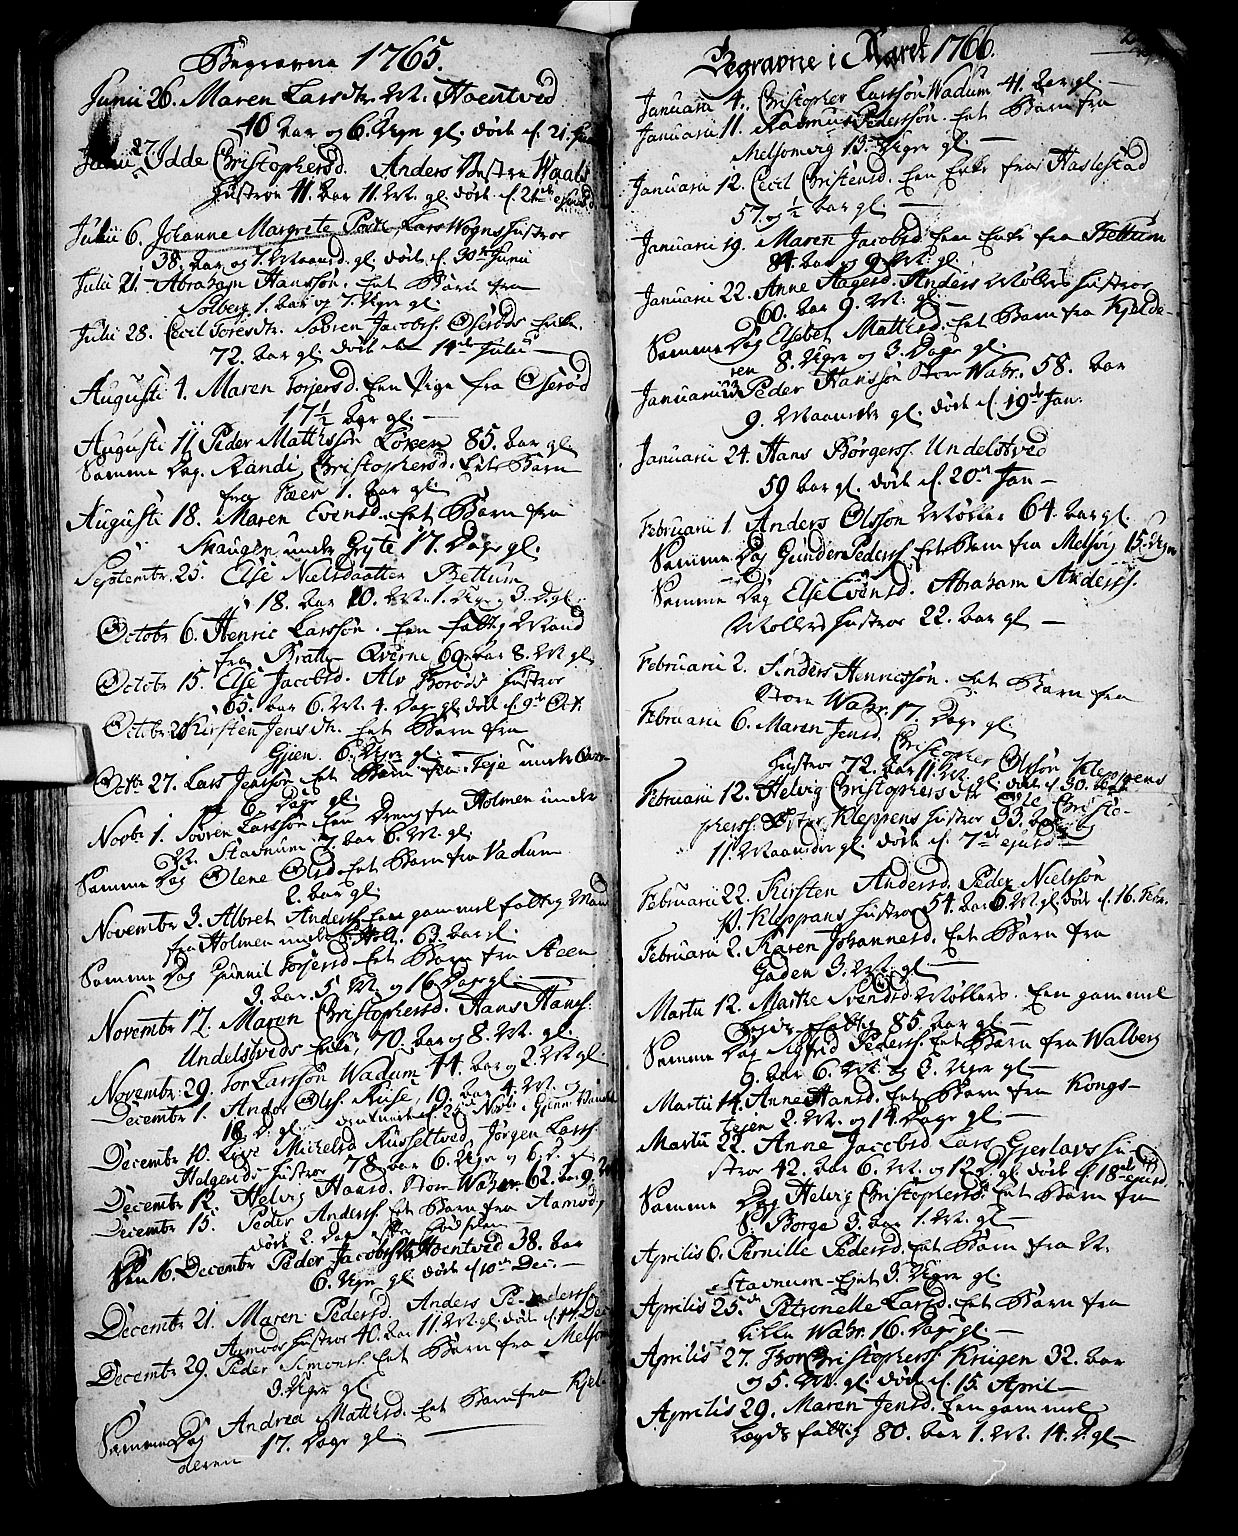 Begravne 1765.
Junii 26. Maren Larsdtr. W. Hoentved
40 Aar og 6. Uger gl. døde d. 21. Jun
Junii 27. Idde Christophersd. Anders Waals
Hustroe 41. Aar 11. M. gl. døde d. 21de ejusd
Julii 6. Johanne Margrete Lars Wogns Hustroe
38. Aar og 7. Maaned. gl. døde d. 30te Junii
Julii 21. Abraham Hanssøn. Eet Barn fra
Solberg 1. Aar og 7. Uger gl.
Julii 28. Cecil Toresdtr. Søbren Jacobss. Oserøds Enke.
72. Aar gl. døde den 14de Julii
Augusti 4. Maren Torjersd. Een Pige fra Oserød
17½ Aar gl.
Augusti 11 Peder Mathissøn Løken 85. Aar gl
Samme Dag. Randi Christophersd. Eet Barn
fra Faer 1. Aar gl.
Augusti 18. Maren Evensd. Eet Barn fra
Skaugen under Gryte 17. Dage gl.
Septembr. 25. Else Nielsdaatter Bettum
18. Aar 10. M. 1. Uge 3. D. gl.
Octobr 6. Henric Larssøn. Een fattig Mand
fra Bratte Qverne 69 Aar 8. M gl.
Octobr 15. Else Jacobsd. Alv Borøds Hustroe
65. Aar 6. M. 4. Dage gl. døde d. 9de Oct.
Octobr 26 Kirsten Jensdtr. Eet Barn fra
Gjien. 6. Uger gl.
Octbr 27. Lars Jenssøn Eet Barn fra Teje under
6. Dage gl.
Novbr 1. Søvren Larssøn Een Dreng fra Holmen under
W. Stavnum 7 Aar 6. M. gl.
Samme Dag Olene Olsd Eet Barn fra Vadum
2. Aar gl.
Novembr 3. Albret Anderss. Een gammel fattig Mand
fra Holmen under 63. Aar gl.
Samme Dag Gunnil Torjersd Eet Barn fra Aeen
3. Aar. 5 M. og 16 Dage gl.
Novembr 17. Maren Christophersd. Hans Hanss.
Undelstveds Enke, 70. Aar og 8. M. gl.
Novembr. 29. Tor Larssøn Wadum 44. Aar og 2. M. gl.
Decembr 1. Andor Olss. Ruse, 19. Aar 4. M. og
18 D. gl.
Decembr 10. Live Michelsd Russeltved Jørgen Larss.
Holgerds Hustroe 78 Aar 6. Uger og 6. D. gl
Decembr 12. Helvig Haarsd. Store Wahr. 62. Aar 9.
Decembr 15. Peder Anderss. Eet Barn fra Aamvog
døde 2. Dage efter Fødselen
Den 16. Decembr Peder Jacobss. Hoentved 38. Aar
6. Uger gl. døde d. 10de Dec.
Decembr 21. Maren Pedersd. Anders Pederssøn
Aamvogs Hustroe 40. Aar 11. M. gl. døde d. 14. Dec
Decembr 29. Peder Simonss. Eet Barn fra Melsom
3. Uger gl
Samme Dag Andrea Mathisd. Eet Barn fra Kjel-
deren 17. Dage gl.
Begravne i Aaret 1766.
Januarii 4. Christopher Larssøn Wadum 41. Aar gl.
Januarii 11. Rasmus Pederssøn. Eet Barn fra
Melsomvig 13. Uger gl.
Januarii 12. Cecil Christensd. Een Enke fra Haslestad
57. og ½ Aar gl.
Januarii 19. Maren Jacobsd Een Enke fra Bettum
84. Aar og 9. M. gl.
Januarii 22. Anne Aagesd. Anders Møllers Hustroe
60. Aar 9. M. gl.
Samme Dag Elsebet Mathisd. Eet Barn fra Kjelde-
ren 8. Uger og 3. Dage gl.
Januarii 23 Peder Hanssøn Store Wahr. 58. Aar
9. Maaneder gl. døde d. 19de Jan.
Januarii 24. Hans Børgerss. Undelstved
59 Aar gl. døde d. 20de Jan
Februarii 1. Anders Olssøn Møller 64. Aar gl.
Samme Dag Gunder Pederss. Eet Barn fra Melsvig 15. Uger
Samme Dag Else Evensd. Abraham Anderss.
Møllers Hustroe 22. Aar gl
Februarii 2. Anders Henricssøn. Eet Barn fra
Store Wahr. 17. Dage gl.
Februarii 6. Maren Jensd. Christopher Olssøn Kleppens
Hustroe 72. Aar 11. M. gl. døde d. 30. Jan
Februarii 12. Helvig Christophersdtr Ole Christo-
pherss. Kleppens Hustroe 33. Aar
11. Maaneder gl. døde d. 7de ejusd
Februarii 22. Kirsten Andersd. Peder Nielssøn
Kleppans Hustroe 54. Aar 6. M. gl. døde d. 16. Febr.
Februarii 2. Karen Johannesd. Eet Barn fra
Gaden 3. M. gl.
Martii 12. Marthe Svendsd. Møllers. Een gammel
Lægds fattig 85. Aar gl.
Samme Dag Sigfrid Pederss. Eet Barn fra Walberg
9. Aar 6. M. og 3. Uger gl.
Martii 14. Anne Hansd. Eet Barn fra Kongs-
tejen 2. M. og 14. Dage gl
Martii 22. Anne Jacobsd Lars Gjerlavs Hu-
stroe 42. Aar 6. M. og 12 D. gl. døde d. 18de ejusd.
Samme Dag Helvig Christophersd. Eet Barn fra
S. Borge 3. Aar 1. M. gl
Aprilis 6. Pernille Pedersd. Eet Barn fra W.
Stavnum Ejet 3. Uger gl.
Aprilis 25de Petronelle Larsd. Eet Barn fra
Lille Wahr. 16. Dage gl.
Aprilis 27. Thor Christopherss. Krügen 32. Aar
og 5. M. gl. døde d. 15. April
Aprilis 29. Maren Jensd. Een gammel
Lægds fattig 80. Aar 1. M. 14. D. gl